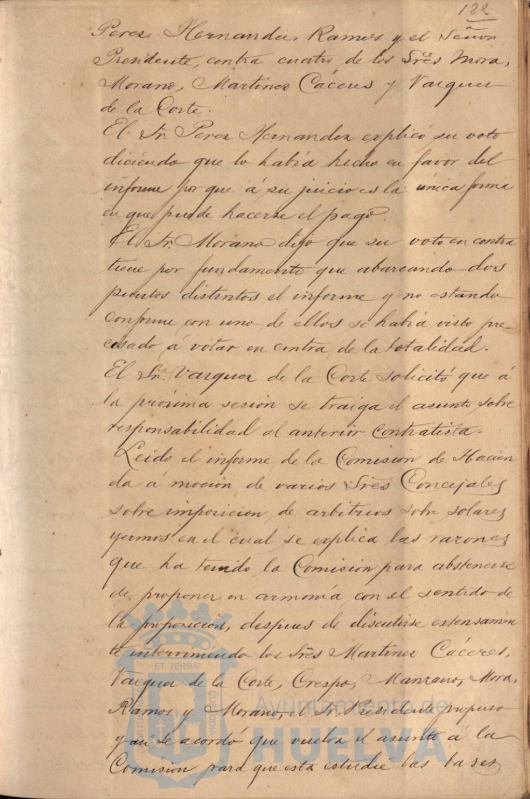 122
Perez Hernandez, Ramos y el Señor
Presidente, contra cuatro de los Sres Mora,
Morano, Martinez Cáceres y Vazquez
de la Corte.
El Sr. Perez Hernandez explicó su voto
diciendo que lo había hecho en favor del
informe por que á su juicio es la única forma
en que puede hacerse el pago.
El Sr. Morano dijo que su voto en contra
tiene por fundamento que abarcando dos
puntos distintos el informe y no estando
conforme con uno de ellos se había visto pre-
cisado á votar en contra de la totalidad.
El Sr. Vazquez de la Corte solicitó que á
la próxima sesión se traiga el asunto sobre
responsabilidad al anterior contratista.
Leido el informe de la Comision de Hacien
da a moción de varios Sres Concejales
sobre imposicion de arbitrios sobre solares
yermos en el cual se explica las razones
que ha tenido la Comisión para abstenerse
de proponer en armonía con el sentido de
la proposición, despues de discutirse extensamen
te interviniendo los Sres Martinez Cáceres,
Vazquez de la Corte, Crespo, Manzano, Mora,
Ramos y Morano, el Sr. Presidente propuso
y así se acordó que vuelva el asunto á la
Comision para que esta estudie las bases
ET TERRÆ
Ayuntamiento de
HUELVA